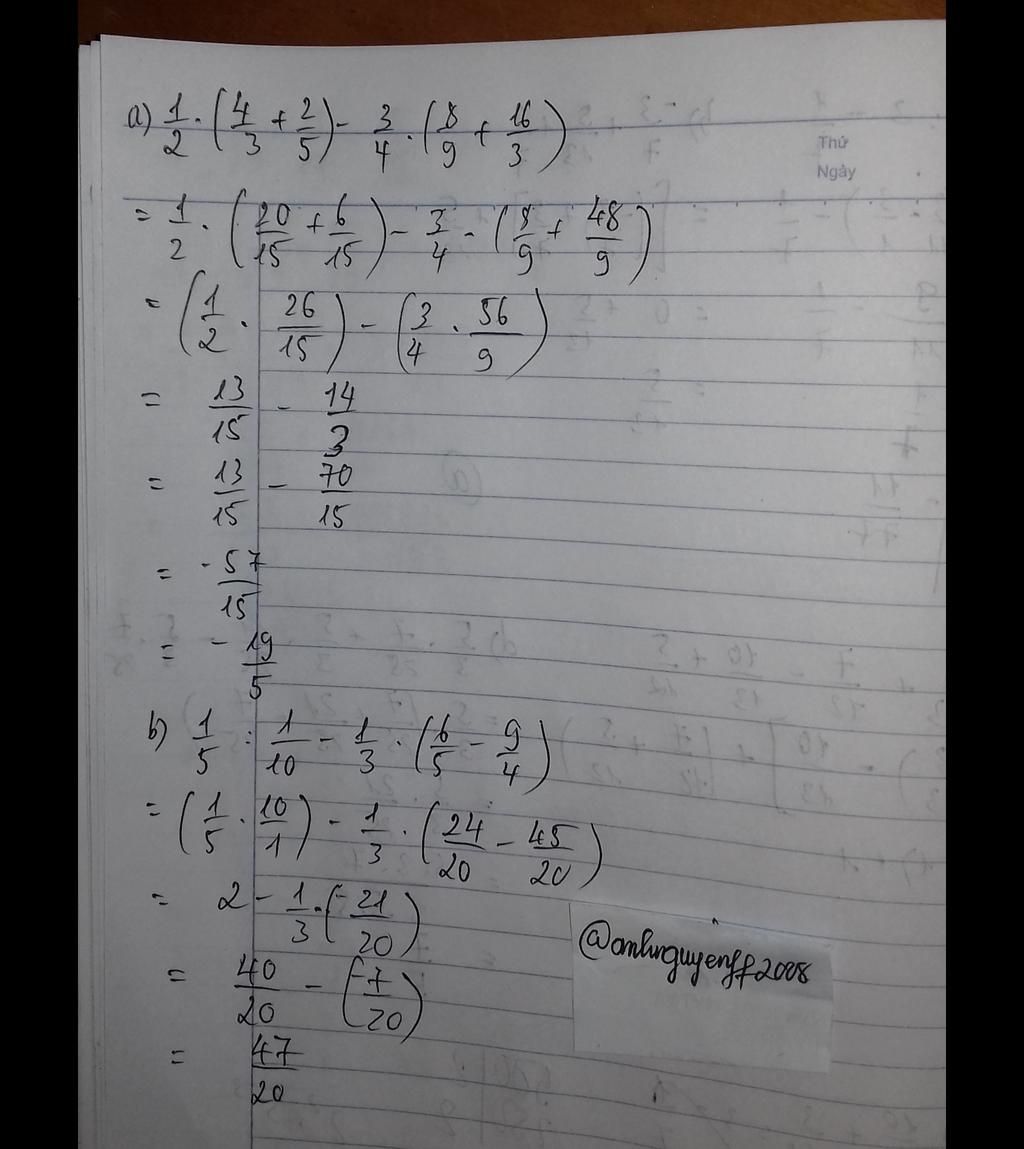 a) 1/2 . (4/3 + 2/5) - 3/4 . (8/9 + 16/3)
Thứ
Ngày
= 1/2 . (20/15 + 6/15) - 3/4 - (8/9 + 48/9)
= (1/2 . 26/15) - (3/4 . 56/9)
= 13/15 - 14/3
= 13/15 - 70/15
= -57/15
= -19/5
b) 1/5 : 1/10 - 1/3 . (6/5 - 9/4)
= (1/5 . 10/1) - 1/3 . (24/20 - 45/20)
= 2 - 1/3 . (-21/20)
= 40/20 - (-7/20)
= 47/20